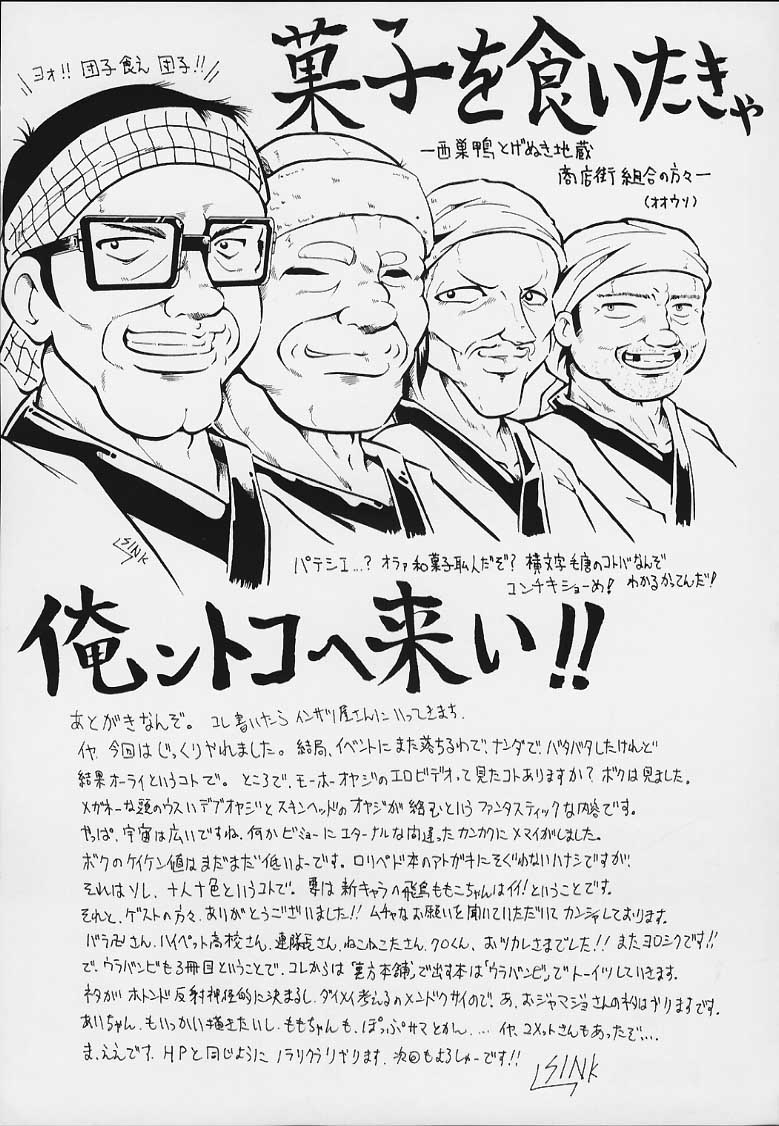 ヨォ!! 団子食え 団子!!
菓子を食いたきゃ
ー西巣鴨とげぬき地蔵
商店街組合の方々ー
(オオウソ)
SINK
パテシエ…? オラァ和菓子職人だぞ? 横文字 毛唐のコトバなんぞ
コンチキショーめ! わかるかってんだ!
俺ントコへ来い!!
あとがきなんぞ。コレ書いたら インサツ屋さんにいってきます.
イヤ、今回はじっくりやれました。結局、イベントにまた落ちるわで、ナンダで、バタバタしたけれど
結果オーライというコトで。ところで、モーホーオヤジのエロビデオって見たコトありますか? ボクは見ました。
メガネーな頭のウスいデブオヤジとスキンヘッドのオヤジが絡むという ファンタスティックな内容です。
やっぱ、宇宙は広いですね、何かビミョーにエターナルな間違ったカンカクに メマイがしました。
ボクのケイケン値はまだまだ低いよーです。ロリペド本のアトガキにそぐわないハナシですが、
それはソレ、十人十色というコトで。要は新キャラの飛鳥ももこちゃんはイイ!ということです。
それと、ゲストの方々、ありがとうございました!! ムチャなお願いを聞いていただいて カンシャしております。
バラ卍さん、ハイペット高校さん、連隊長さん、ねこねこたさん、クロくん、おツカレさまでした!! またヨロシクです!!
で、ウラバンビも3冊目ということで、コレからは「裏方本舗」で出す本は「ウラバンビ」でトーイツしていきます。
ネタが ホトンド 反射神経的に決まるし、ダイメイ考えるのメンドクサイので。あ、おジャマジョさんのネタはやりますです。
あいちゃん、もいっかい描きたいし、ももちゃんも、ぽっぷサマとかん、… イヤ、コメットさんもあったぞ…
ま、ええです、HPと同じように ノラリクラリやります、次回もよろしゅーです!!
SINK